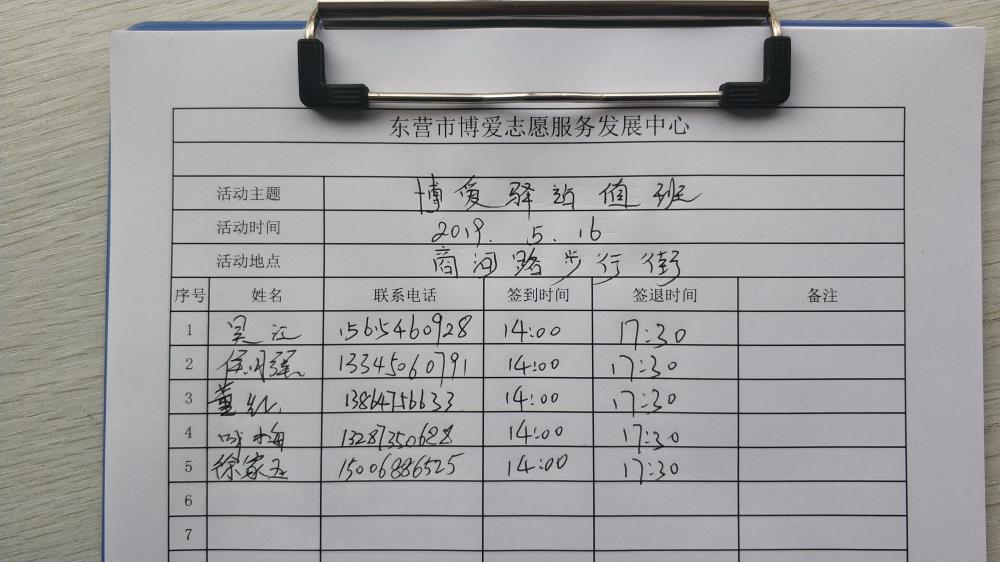 东营市博爱志愿服务发展中心
活动主题 博爱驿站值班
活动时间 2019. 5. 16
活动地点 商河路步行街
序号 姓名 联系电话 签到时间 签退时间 备注
1 吴江 15615460928 14:00 17:30
2 13345060791 14:00 17:30
3 董红 13864756633 14:00 17:30
4 13287350628 14:00 17:30
5 徐家玉 15006886525 14:00 17:30
6
7